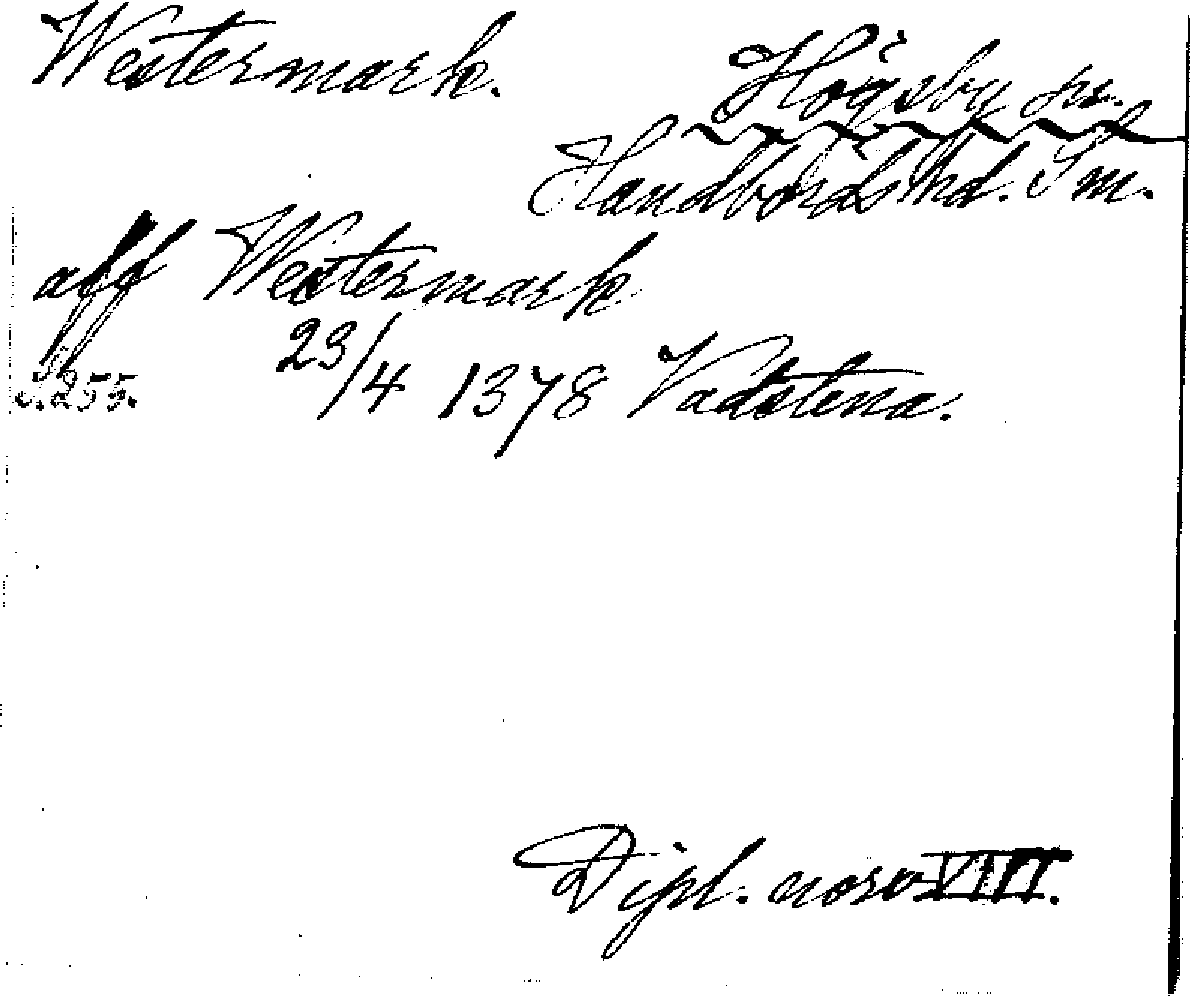 Westermark.
Högsby sn.
Handbörds hd. Sm.
aff Westermark
s. 255.
23/4 1378 Vadstena.
Dipl. norv VIII.